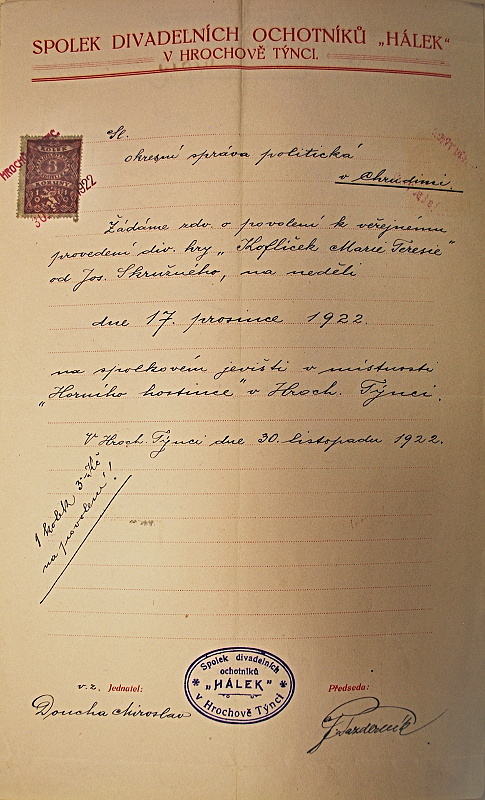 SPOLEK DIVADELNÍCH OCHOTNÍKŮ „HÁLEK“
V HROCHOVĚ TÝNCI.
Sl.
okresní správa politická
v Chrudimi.
Žádáme zdv. o povolení k veřejnému
provedení div. hry „Koflíček Marie Teresie“
od Jos. Skružného, na neděli
dne 17. prosince 1922.
na spolkovém jevišti v místnosti
„Horního hostince“ v Hroch. Týnci.
V Hroch. Týnci dne 30. listopadu 1922.
1 kolek 3 Kč
na povolení!
Spolek divadelních
ochotníků
„HÁLEK“
v Hrochově Týnci
v. z. Jednatel:
Doucha Miroslav
Předseda: